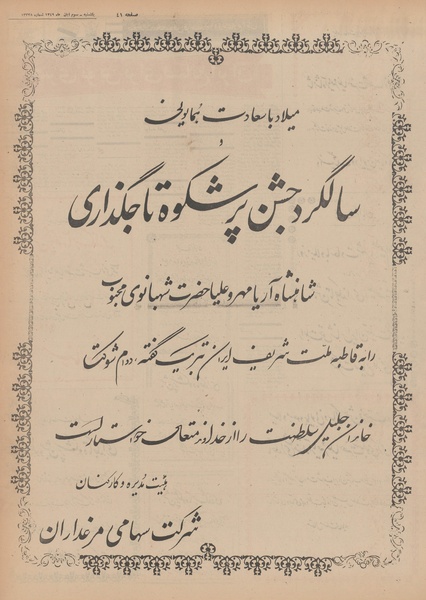 صفحه ۴۱
میلاد با سعادت همایونی
و
سالگرد جشن پر شکوه تاجگذاری
شاهنشاه آریامهر و علیاحضرت شهبانوی محبوب
را به قاطبه ملت شریف ایران تبریک گفته، دوام شوکت
خاندان جلیل سلطنت را از خداوند متعال خواستار است
هیئت مدیره و کارکنان
شرکت سهامی مرغداران